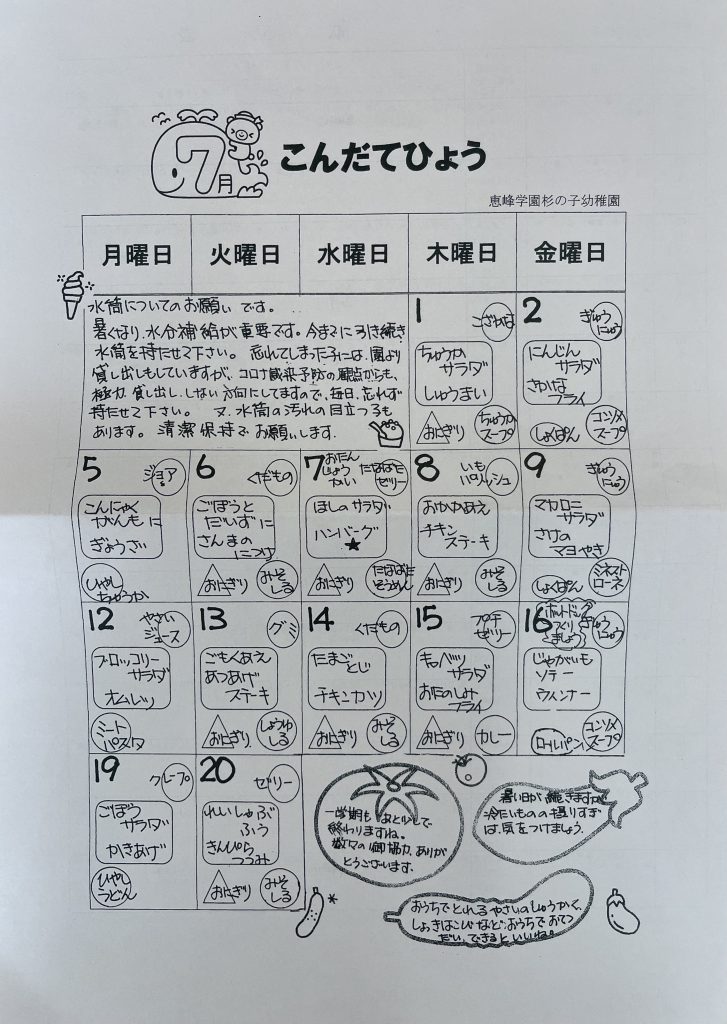 7月
こんだてひょう
恵峰学園杉の子幼稚園
月曜日 火曜日 水曜日 木曜日 金曜日
水筒についてのお願い です。
暑くなり、水分補給が重要です。今までに引き続き
水筒を持たせて下さい。 忘れてしまった子には、園より
貸し出しもしていますが、コロナ感染予防の観点からも、
極力 貸し出し、しない方向にしてますので、毎日、忘れず
持たせて下さい。 又、水筒の汚れの目立つ子も
あります。清潔保持でお願いします。
1
こざかな
ちゅうか
サラダ
しゅうまい
おにぎり
ちゅうか
スープ
2
ぎゅう
にゅう
にんじん
サラダ
さわら
フライ
しょくぱん
コンソメ
スープ
5
ジョア
こんにゃく
がんもに
ぎょうざ
ひやし
ちゅうか
6
くだもの
ごぼうと
だいずに
さんまの
につけ
おにぎり
みそ
しる
7
おたん
じょう
かい
たなばた
ゼリー
ほしのサラダ
ハンバーグ
★
おにぎり
たなばた
そうめん
8
いも
パリッシュ
おかかあえ
チキン
ステーキ
おにぎり
みそ
しる
9
ぎゅう
にゅう
マカロニ
サラダ
さけの
マヨやき
しょくぱん
ミネスト
ローネ
12
やさい
ジュース
ブロッコリー
サラダ
オムレツ
ミート
パスタ
13
グミ
ごもくあえ
あつあげ
ステーキ
おにぎり
しょうゆ
しる
14
くだもの
たまご
とじ
チキンカツ
おにぎり
みそ
しる
15
プチ
ゼリー
キャベツ
サラダ
おたのしみ
フライ
おにぎり
カレー
16
ホットドッグ
つくり
ましょう
ぎゅう
にゅう
じゃがいも
ソテー
ウィンナー
ロールパン
コンソメ
スープ
19
クレープ
ごぼう
サラダ
かきあげ
ひやし
うどん
20
ゼリー
れいしゃぶ
ふう
きんぴら
つつみ
おにぎり
みそ
しる
一学期も あと少しで
終わりますね。
数々の御協力、ありが
とうございます。
暑い日が、続きますが、
冷たいものの摂りすぎ
は、気をつけましょう。
おうちでとれるやさいのしゅうかく、
しょっきはこび など、おうちで おてつ
だい、できるといいね。